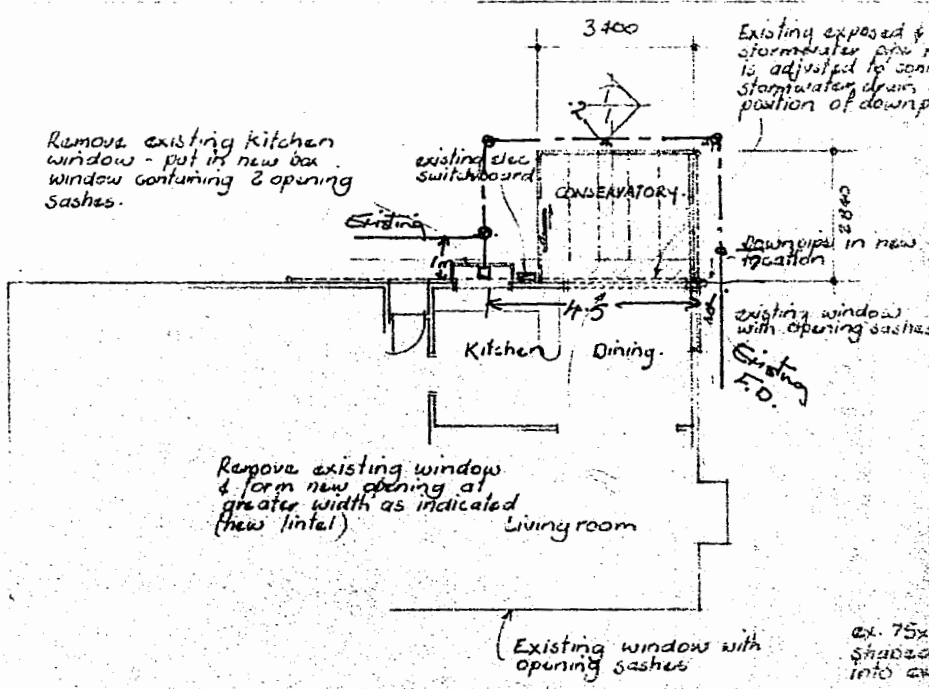 3400
Existing exposed &
stormwater
is adjusted to conn
stormwater drain
position of downp
Remove existing kitchen
window - put in new box
window containing 2 opening
sashes.
existing elec
switchboard
2
1
1
CONSERVATORY.
Existing
2840
1m
Downpipe in new
location
4.5
existing window
with opening sashes
Kitchen
Dining.
Existing
F.D.
Remove existing window
& form new opening at
greater width as indicated
(new lintel)
Living room
Existing window with
opening sashes
ex. 75x
shaped
into ex